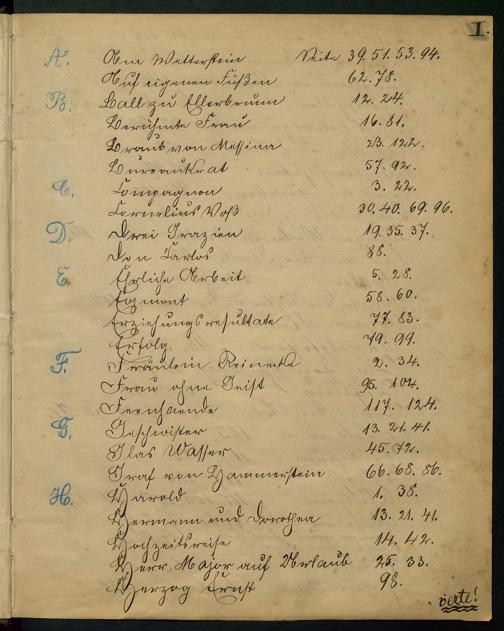 I.
A. Am Wetterstein Seite 39. 51. 53. 94.
Auf eigenen Füßen 62. 78.
B. Ball zu Ellerbrunn 12. 24.
Berühmte Frau 16. 81.
Braut von Messina 23. 122.
Bureaukrat 57. 92.
C. Compagnon 3. 22.
Cornelius Voß 30. 40. 69. 96.
D. Drei Grazien 19. 35. 37.
Don Carlos 88.
E. Ehrliche Arbeit 5. 28.
Egmont 58. 60.
Erziehungsresultate 77. 83.
Erfolg 79. 99.
F. Fräulein 2. 34.
Frau ohne Geist 95. 104.
117. 124.
G. Geschwister 13. 21. 41.
Glas Wasser 45. 72.
Graf von Hammerstein 66. 68. 86.
H. Harold 1. 38.
Hermann und Dorothea 13. 21. 41.
Hochzeitsreise 14. 42.
Herr Major auf Urlaub 25. 33.
Herzog Ernst 98.
verte!